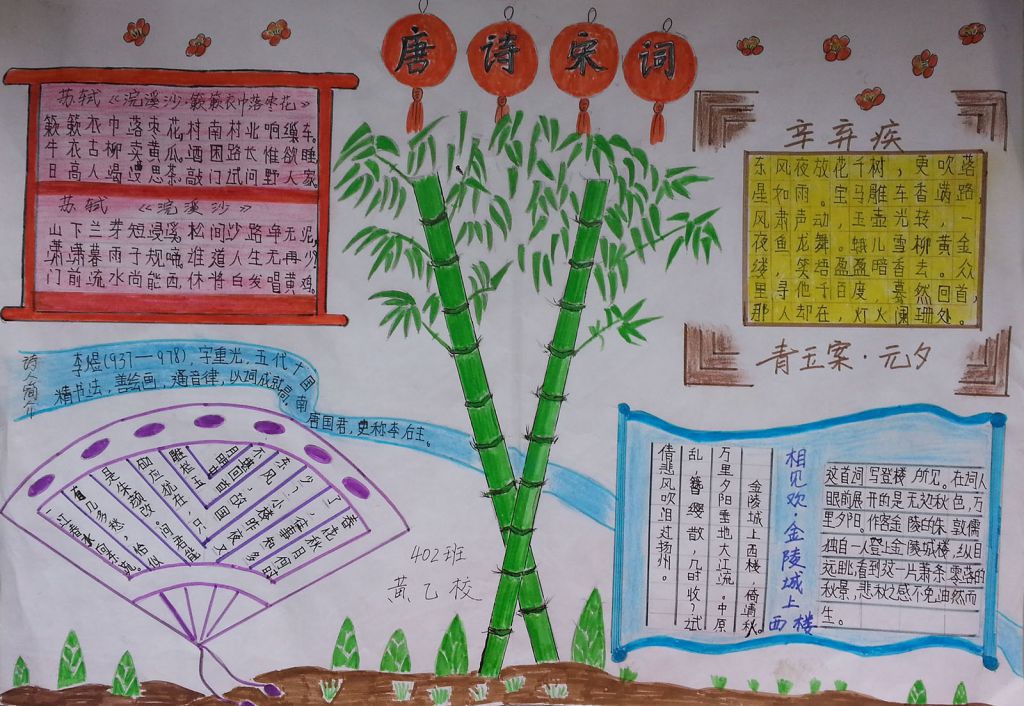 唐诗宋词
苏轼《浣溪沙·簌簌衣巾落枣花》
簌簌衣巾落枣花村南村北响缫车。
牛衣古柳卖黄瓜酒困路长惟欲睡
日高人渴漫思茶敲门试问野人家
苏轼 《浣溪沙》
山下兰芽短浸溪松间沙路净无泥,
萧萧暮雨子规啼谁道人生无再少
门前流水尚能西休将白发唱黄鸡。
辛弃疾
东风夜放花千树,更吹落
星如雨。宝马雕车香满路,
风肃声动,玉壶光转,一
夜鱼龙舞。蛾儿雪柳黄金
缕,笑语盈盈暗香去。众
里寻他千百度,蓦然回首,
那人却在,灯火阑珊处。
青玉案·元夕
诗人简介
李煜(937—978),字重光,五代十国南
精书法,善绘画,通音律,以词成就高,
唐国君,史称李后主。
春花秋月何时
了,往事知多
少?小楼昨夜又
东风,故国
不堪回首
月明中。
雕栏玉
砌应犹在,只
是朱颜改。
问君能
有几多愁,恰似
一江春水向东流。
402班
相见欢·金陵城上西楼
金陵城上西楼,倚清秋。
万里夕阳垂地大江流。中原
乱,簪缨散,几时收?试
倩悲风吹泪过扬州。
这首词写登楼所见。在词人
眼前展开的是无边秋色,万
里夕阳。作客金陵的朱敦儒
独自一人登上金陵城楼,纵目
远眺,看到这一片萧条零落的
秋景,悲秋之感不免油然而
生。